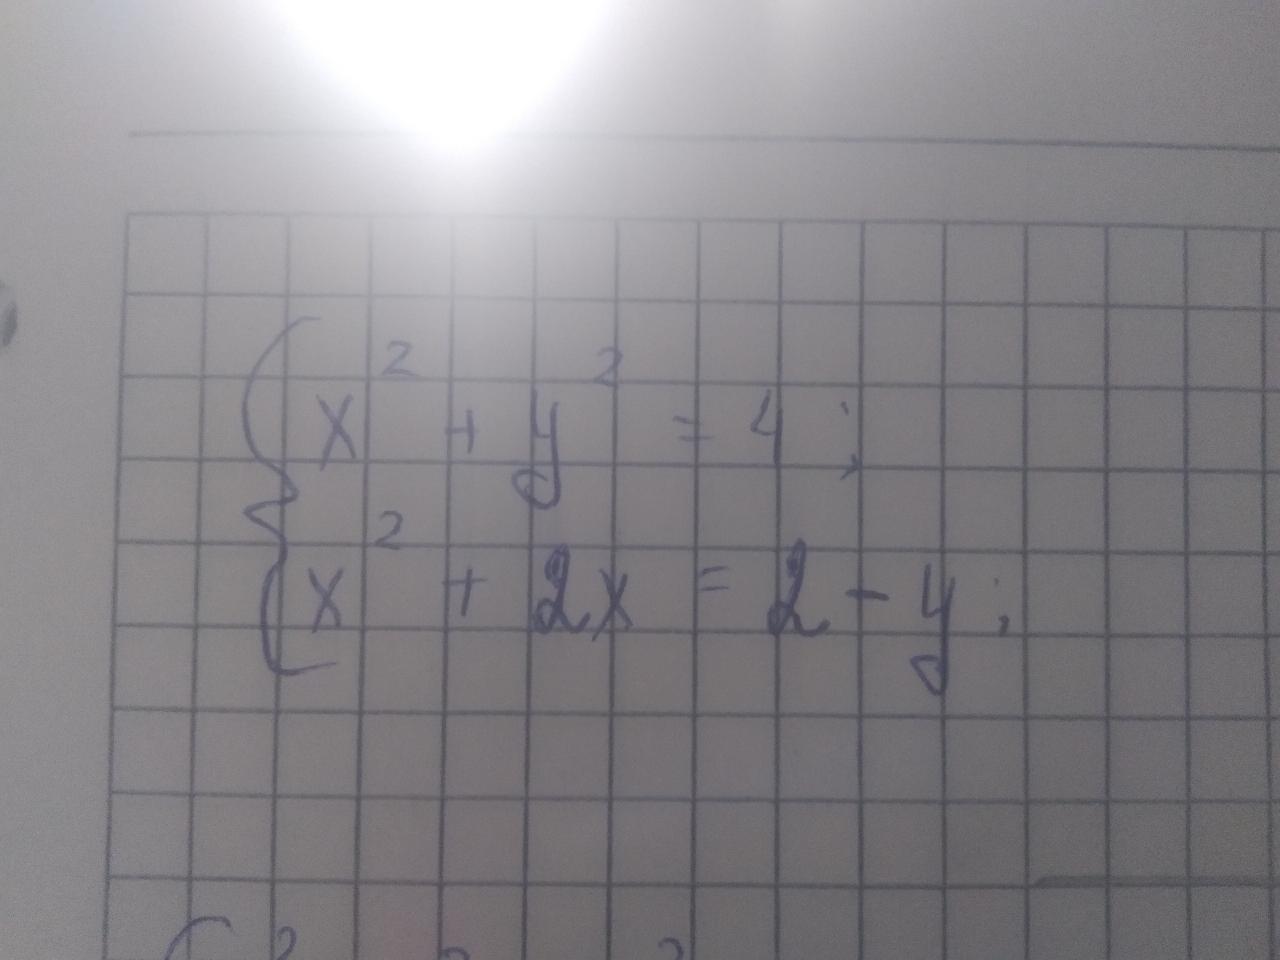 x² + y² = 4;
x² + 2x = 2 - y;